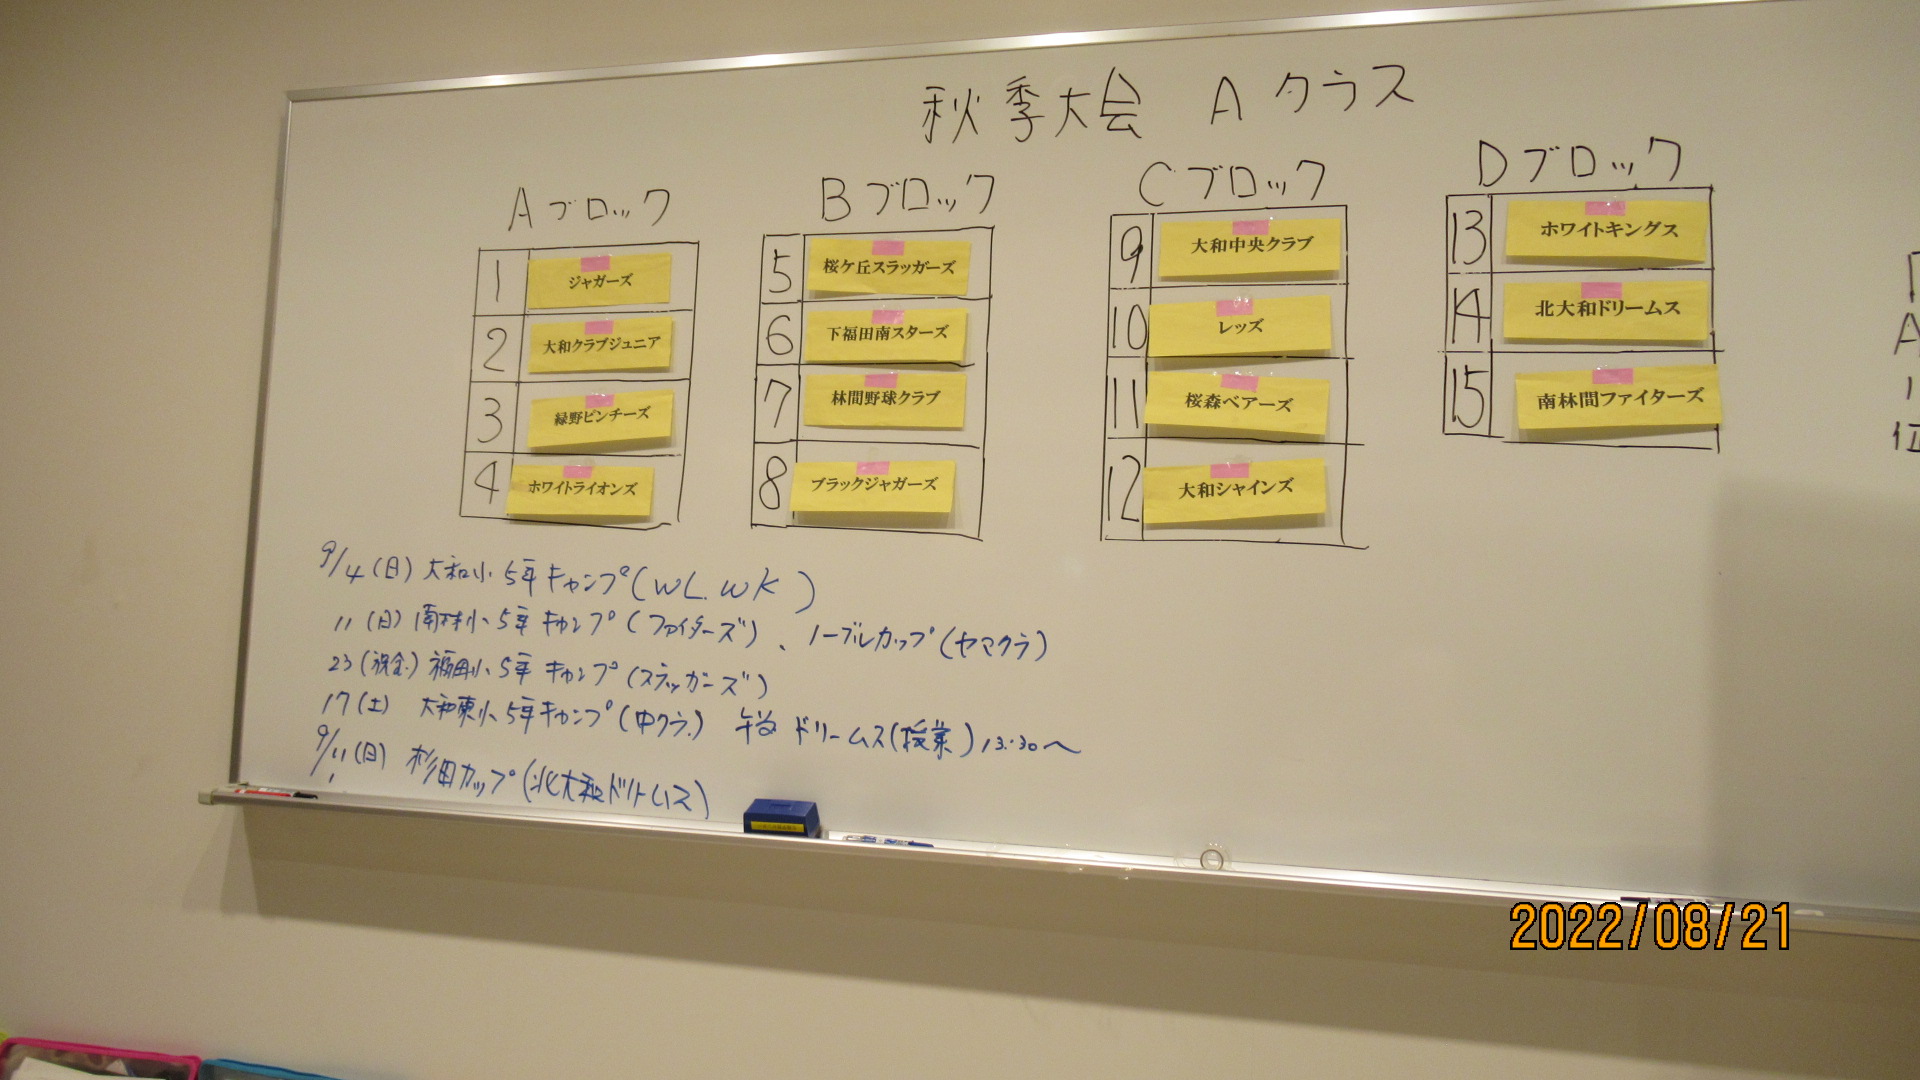 秋季大会 Aクラス
Aブロック
1 ジャガーズ
2 大和クラブジュニア
3 緑野ピンチーズ
4 ホワイトライオンズ
Bブロック
5 桜ケ丘スラッガーズ
6 下福田南スターズ
7 林間野球クラブ
8 ブラックジャガーズ
Cブロック
9 大和中央クラブ
10 レッズ
11 桜森ベアーズ
12 大和シャインズ
Dブロック
13 ホワイトキングス
14 北大和ドリームス
15 南林間ファイターズ
9/4(日) 大和小5年キャンプ(WL.WK)
11(日) 南林小5年キャンプ(ファイターズ)、ノーブルカップ(ヤマクラ)
23(祝金) 福田小5年キャンプ(スラッガーズ)
17(土) 大和東小5年キャンプ(中クラ.) ドリームス(授業)13:30〜
9/11(日) 杉田カップ(北大和ドリームス)
2022/08/21